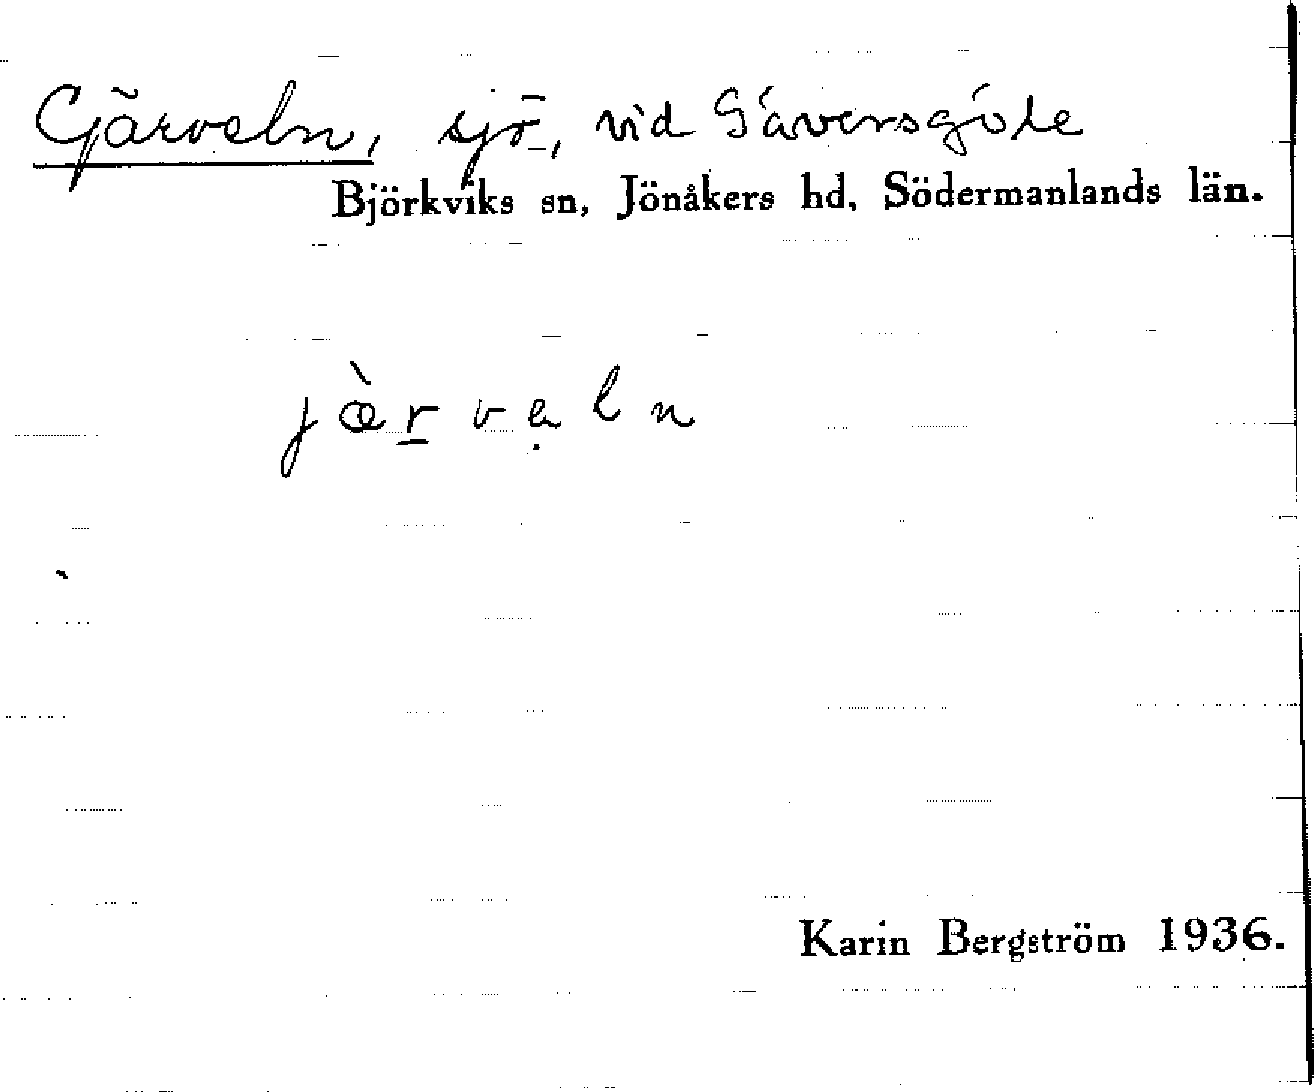 Gärveln, sjö, vid Säversgöle
Björkviks sn, Jönåkers hd, Södermanlands län.
jæ̀rvəln
Karin Bergström 1936.